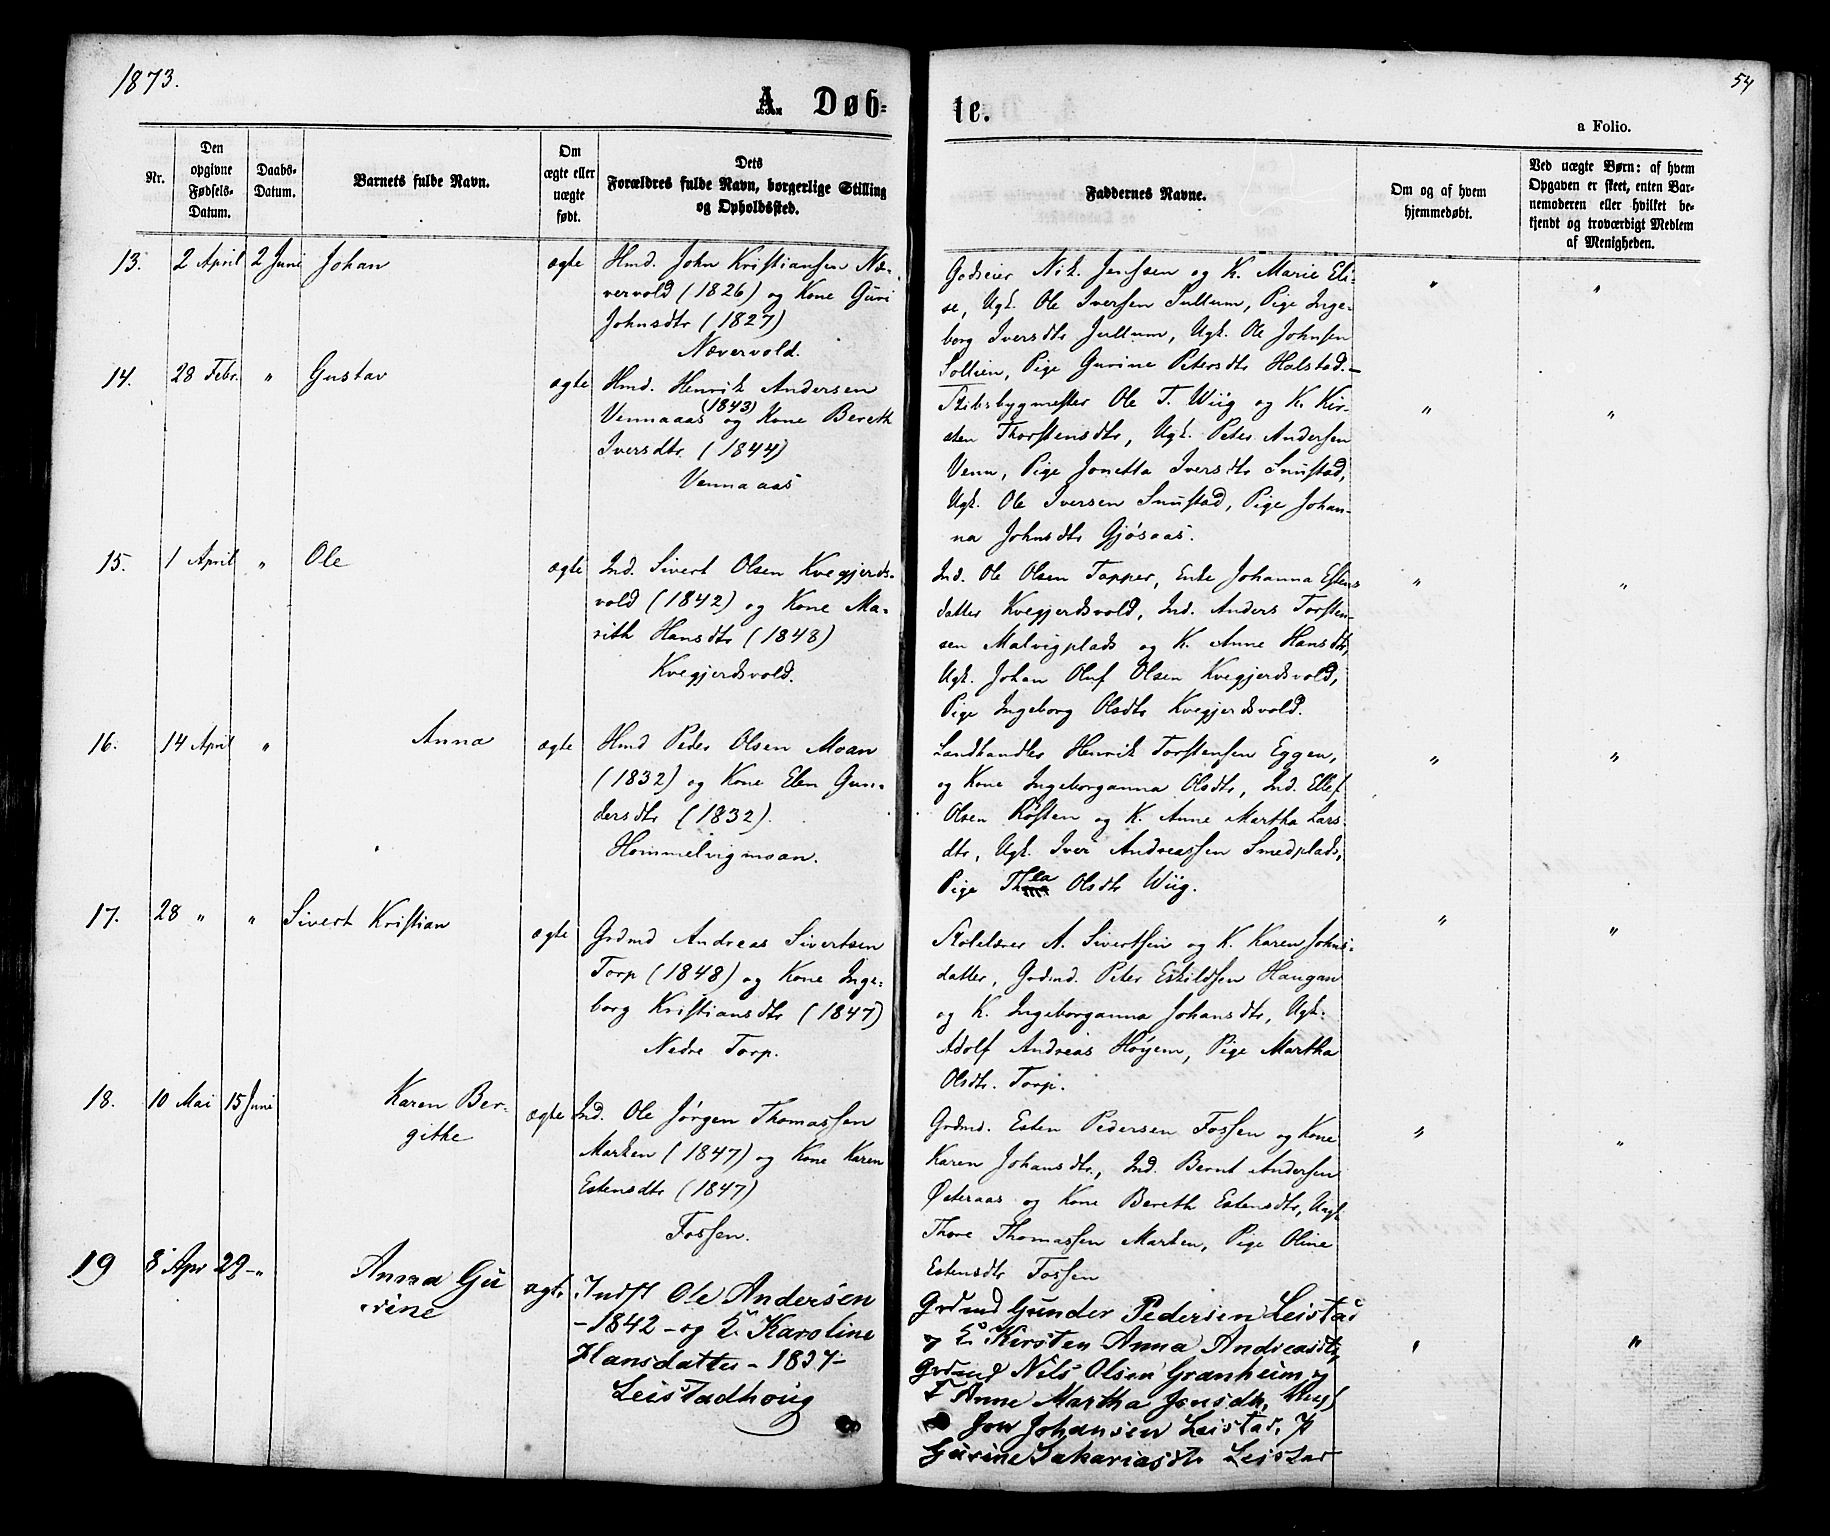 1873.
54
A. Døb-
te.
a Folio.
Nr.
Den
opgivne
Fødsels-
Datum.
Daabs-
Datum.
Barnets fulde Navn.
Om
ægte eller
uægte
født.
Dets
Forældres fulde Navn, borgerlige Stilling
og Opholdssted.
Faddernes Navne.
Om og af hvem
hjemmedøbt.
Ved uægte Børn: af hvem
Opgaven er skeet, enten Bar-
nemoderen eller hvilket be-
kjendt og troværdigt Medlem
af Menigheden.
13. 2 April 2 Juni Johan ægte
Hmd. John Kristiansen Næ-
vervold (1826) og Kone Guri
Johnsdtr (1827)
Nævervold.
Godseier Nik. Jenssen og K. Marie Eli-
se, Ugk. Ole Iversen Jullum, Pige Inge-
borg Iversdtr Jullum, Ugk. Ole Johnsen
Sollien, Pige Gurine Petersdtr Halstad.-
" "
14. 28 Febr. " Gustav ægte
Hmd. Henrik Andersen
Vennaaas (1843) og Kone Bereth
Iversdtr. (1844)
Vennaaas
Skibsbygmester Ole T. Wiig og K. Kir-
sten Thorstensdtr, Ugk. Peter Andersen
Venn, Pige Jonetta Iversdtr Snustad,
Ugk. Ole Iversen Snustad, Pige Johan-
na Johnsdtr Gjøsaas.
" "
15. 1 April " Ole ægte
Ind. Sivert Olsen Kvegjerds-
vold (1842) og Kone Ma-
rith Hansdtr (1848)
Kvegjerdsvold.
Ind. Ole Olsen Tapper, Enke Johanna Estens
datter Kvegjerdsvold, Ind. Anders Torsten-
sen Malvigplads og K. Anne Hansdtr,
Ugk. Johan Oluf Olsen Kvegjerdsvold,
Pige Ingeborg Olsdtr Kvegjerdsvold.
" "
16. 14 April " Anna ægte
Hmd Peder Olsen Moan
(1832) og Kone Elen Gun-
dersdtr (1832).
Hommelvigmoan.
Landhandler Henrik Torstensen Eggen,
og Kone Ingeborganna Olsdtr, Ind. Ellef
Olsen Røsten og K. Anne Martha Lars
dtr, Ugk. Iver Andreassen Smedplads,
Pige Thea Olsdtr Wiig.
" "
17. 28 " " Sivert Kristian ægte
Grdmd Andreas Sivertsen
Torp (1848) og Kone Inge-
borg Kristiansdtr (1847)
Nedre Torp.
Skolelærer A. Sivertsen og K. Karen Johns-
datter, Grdmd. Peter Eskildsen Haugan
og K. Ingeborganna Johansdtr, Ugk.
Adolf Andreas Høyem, Pige Martha
Olsdtr. Torp.
" "
18. 10 Mai 15 Juni Karen Ber-
githe ægte
Ind. Ole Jørgen Thomassen
Marken (1847) og Kone Karen
Estensdtr (1847)
Fossen.
Grdmd. Esten Pedersen Fossen og Kone
Karen Johansdtr., Ind. Bernt Andersen
Østeraas og Kone Bereth Estensdtr, Ungk
Thore Thomassen Marken, Pige Oline
Estensdtr Fossen
" "
19 8 Apr 29 - " Anna Gu
rine ægte
Indst Ole Andersen
- 1842 - og K. Karoline
Hansdatter - 1837 -
Leistadhoug
Grdmd Gunder Pedersen Leistad
og K Kirsten Anna Andreasdtr,
Grdmd Nils Olsen Granheim og
K Anne Martha Jonsdtr, Ungk
Jon Johansen Leistad, P
Gurine Sakariasdtr Leistad
" "